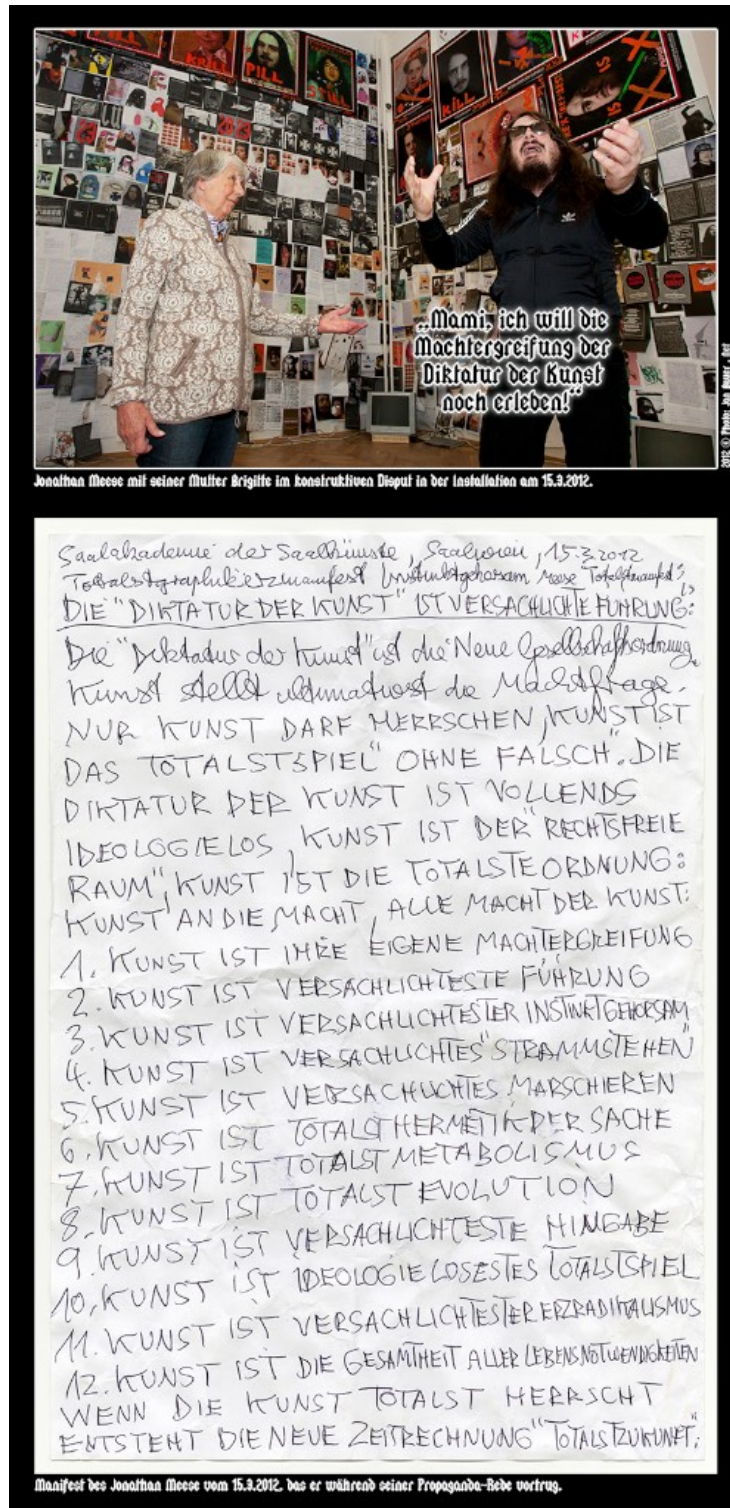 KRILL
PILL
STILL
KILL
„Mami, ich will die
Machtergreifung der
Diktatur der Kunst
noch erleben!“
Jonathan Meese mit seiner Mutter Brigitte im konstruktiven Disput in der Installation am 15.3.2012.
Saalakademie der Saalkünste, 15.3.2012
DIE "DIKTATUR DER KUNST" IST VERSACHLICHTE FÜHRUNG:
Die "Diktatur der Kunst" ist die Neue Gesellschaftsordnung,
Kunst stellt ultimativst die Machtfrage.
NUR KUNST DARF HERRSCHEN, KUNST IST
DAS "TOTALSTSPIEL" OHNE FALSCH". DIE
DIKTATUR DER KUNST IST VOLLENDS
IDEOLOGIELOS, KUNST IST DER "RECHTSFREIE
RAUM", KUNST IST DIE TOTALSTE ORDNUNG:
KUNST AN DIE MACHT, ALLE MACHT DER KUNST:
1. KUNST IST IHRE EIGENE MACHTERGREIFUNG
2. KUNST IST VERSACHLICHTESTE FÜHRUNG
3. KUNST IST VERSACHLICHTESTER INSTINKTGEHORSAM
4. KUNST IST VERSACHLICHTES "STRAMMSTEHEN"
5. KUNST IST VERSACHLICHTES MARSCHIEREN
6. KUNST IST TOTALSTHERMETIK DER SACHE
7. KUNST IST TOTALSTMETABOLISMUS
8. KUNST IST TOTALST EVOLUTION
9. KUNST IST VERSACHLICHTESTE HINGABE
10. KUNST IST IDEOLOGIELOSESTES TOTALSTSPIEL
11. KUNST IST VERSACHLICHTESTER ERZRADIKALISMUS
12. KUNST IST DIE GESAMTHEIT ALLER LEBENSNOTWENDIGKEITEN
WENN DIE KUNST TOTALST HERRSCHT
ENTSTEHT DIE NEUE ZEITRECHNUNG "TOTALSTZUKUNFT":
Manifest des Jonathan Meese vom 15.3.2012, das er während seiner Propaganda-Rede vortrug.